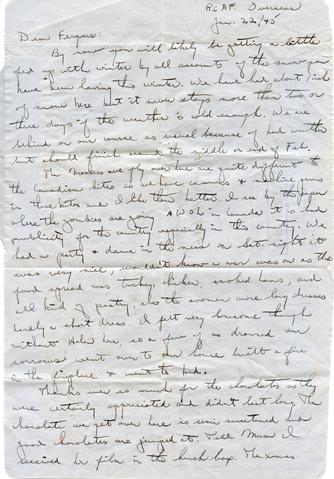 RCAF Overseas
Jan. 22/45
Dear Fergus:
By now you will likely be getting a little
fed up with winter by all accounts of the snow you
have been having this winter. We have had about 1 inch
of snow here but it never stays more than two or
three days if the weather is cold enough. We are
behind on our course as usual because of bad weather
but should finish near the middle or end of Feb.
The Mossies we fly over here are quite different to
the Canadian kites as we have cannons & machine guns
in these kites and I like them better. I see by the papers
where the zombies are going AWOL in Canada it is bad
publicity for the country especially in this country. We
had a party & dance in the mess on Sat. night it
was very nice, wouldn't know a war was on as the
food spread was turkey, chicken, smoked hams, and
all kind of pastry, also the women wore long dresses
hardly a short dress. I felt very lonesome though
without Helen here, so a few of us drowned our
sorrows went over to our house built a fire
in the fireplace & went to bed.
Thanks ever so much for the chocolates as they
were certainly appreciated and didn't last long. The
chocolate we get over here is semi sweetened and
good chocolates are jumped at. Tell Mum I
received her film in the lunch box. The xmas